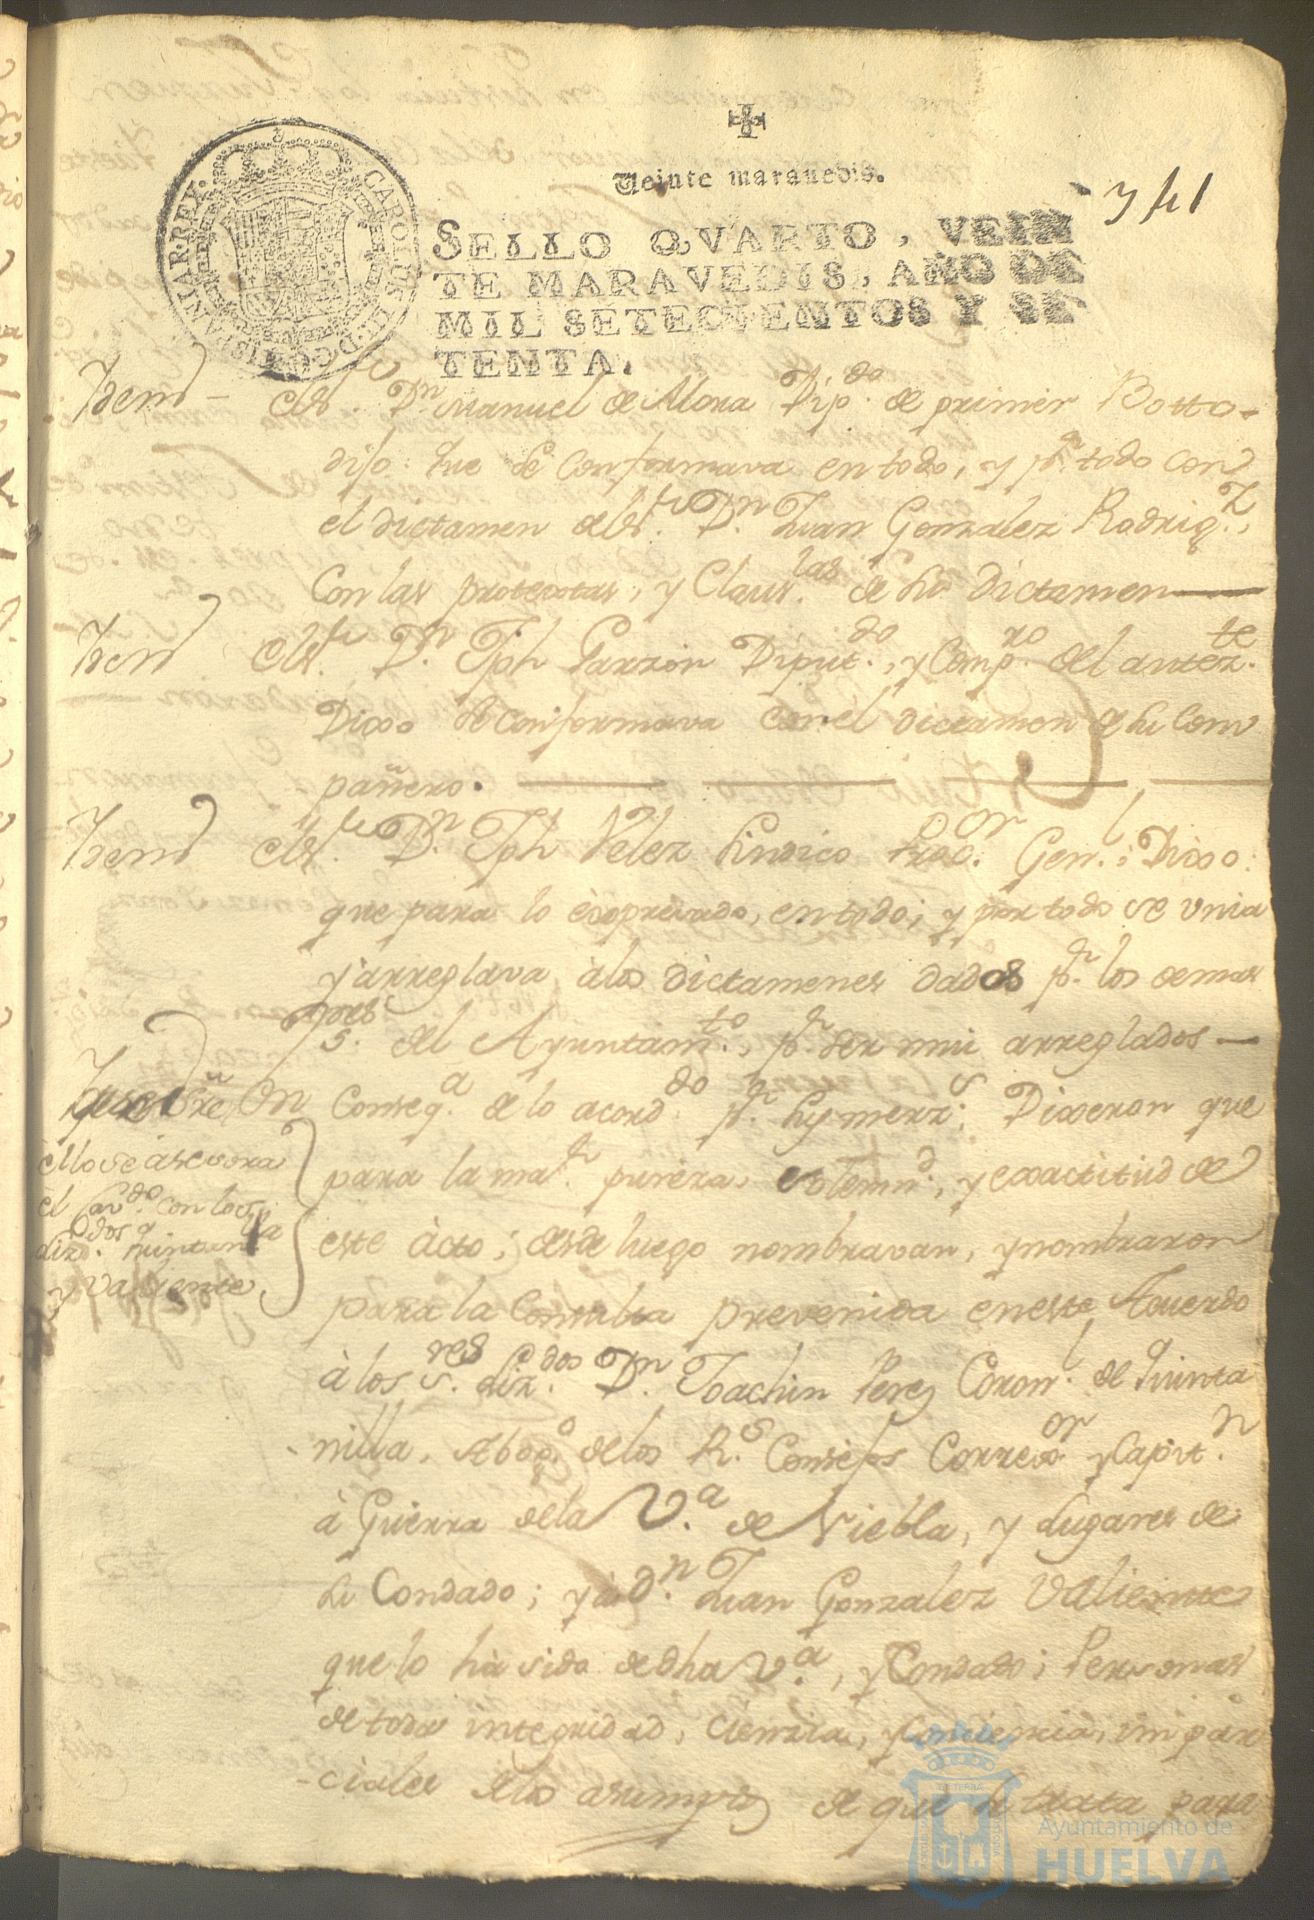 ✠
Veinte maravedis.
341
SELLO QVARTO, VEIN
TE MARAVEDIS, AÑO DE
MIL SETECIENTOS Y SE
TENTA.
CAROLUS III D G HISPANIAR REX
Ytem - el Sr. Dn Manuel de Mora Dipdo. de primer Botto-
dijo. que se Conformava en todo, y pr. todo con
el dictamen del Sr. Dn. Juan Gonzalez Rodrigz.,
Con las protextas, y Claus.las de su Dictamen
Ytem el Sr. Dn. Jph Garzón Diput.do, y Comp.ro del antez.te
Dixo se conformava con el dictamen de su Com
pañero.
Ytem el Sr. Dn. Jph Velez Sindico Proc.or Gen.l; Dixo:
que para lo exopresado, en todo; y por todo se unia
y arreglava à los dictamenes dados pr. los demas
S.res del Ayuntam.to, pr. ser mui arreglados
Conseq.a de lo acord.do pr. sus merz.s; Dixeron que
ello se asesora
el Cav.do con los
liz.dos Quintan.lla
y Valiente
para la ma.r pureza, solemn.d, y exactitud de
este àcto; desde luego nombravan, y nombraron
para la Consulta prevenida en este Acuerdo
à los S.res Liz.dos Dn. Joachin Perez Coron.l de Quinta
nilla, Abog.o de los R.s Consejos Corre.or y Capit.n
à Guerra de la V.a de Niebla, y Lugares de
su Condado; y à d.n Juan Gonzalez Valiente
que lo hà sido de dha V.a, y Condado; Personas
de toda integridad, cienzia, y conciencia, impar
-ciales de los asumptos de que se trata para
Ayuntamiento de
HUELVA